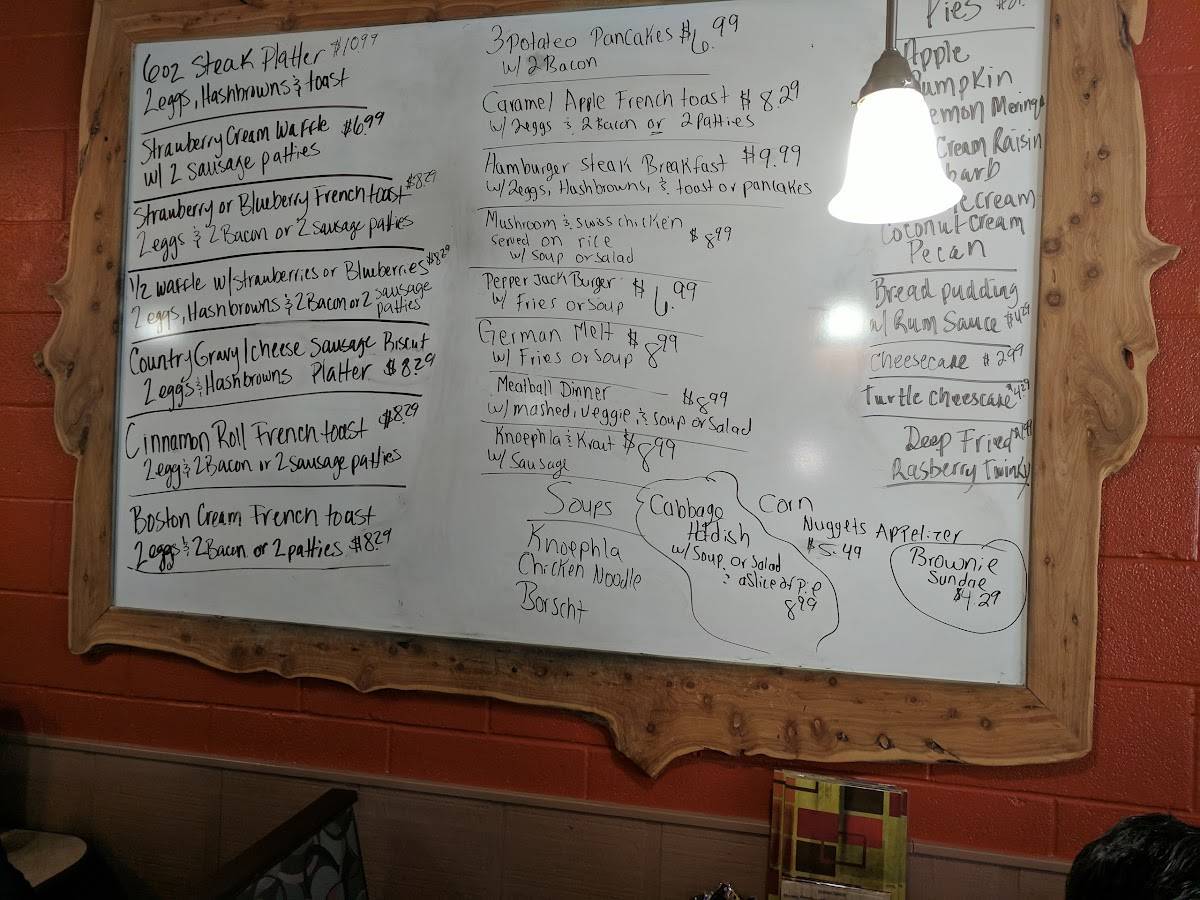 6oz Steak Platter $10.99
2eggs, Hashbrowns & toast
Strawberry Cream Waffle $6.99
w/ 2 Sausage patties
Strawberry or Blueberry French toast $8.29
2eggs & 2 Bacon or 2 sausage patties
1/2 waffle w/strawberries or Blueberries $8.29
2 eggs, Hashbrowns & 2 Bacon or 2 sausage patties
Country Gravy/cheese Sausage Biscut
2 eggs & Hashbrowns Platter $8.29
Cinnamon Roll French toast $8.29
2 egg & 2 Bacon or 2 Sausage patties
Boston Cream French toast
2eggs & 2 Bacon or 2 patties $8.29
3 Potateo Pancakes $6.99
w/ 2 Bacon
Caramel Apple French toast $8.29
w/ 2eggs & 2 Bacon or 2 Patties
Hamburger Steak Breakfast $9.99
w/ 2eggs, Hashbrowns, & toast or pancakes
Mushroom & swiss chicken
served on rice $8.99
w/ soup or salad
Pepper Jack Burger $6.99
w/ Fries or soup
German Melt $8.99
w/ Fries or soup
Meatball Dinner $8.99
w/ mashed, veggie, & soup or salad
Knoephla & Kraut $8.99
w/ Sausage
Soups
Knoephla
Chicken Noodle
Borscht
Cabbage
Hotdish
w/ Soup or Salad
& a slice of pie
8.99
Corn
Nuggets Appetizer
$5.49
Brownie
Sundae
$4.29
Pies
Apple
Pumpkin
Lemon Meringue
Cream Raisin
Cream
Coconut Cream
Pecan
Bread pudding
w/ Rum Sauce $4.29
Cheesecake $2.99
Turtle cheesecake $4.29
Deep Fried
Rasberry Twinky